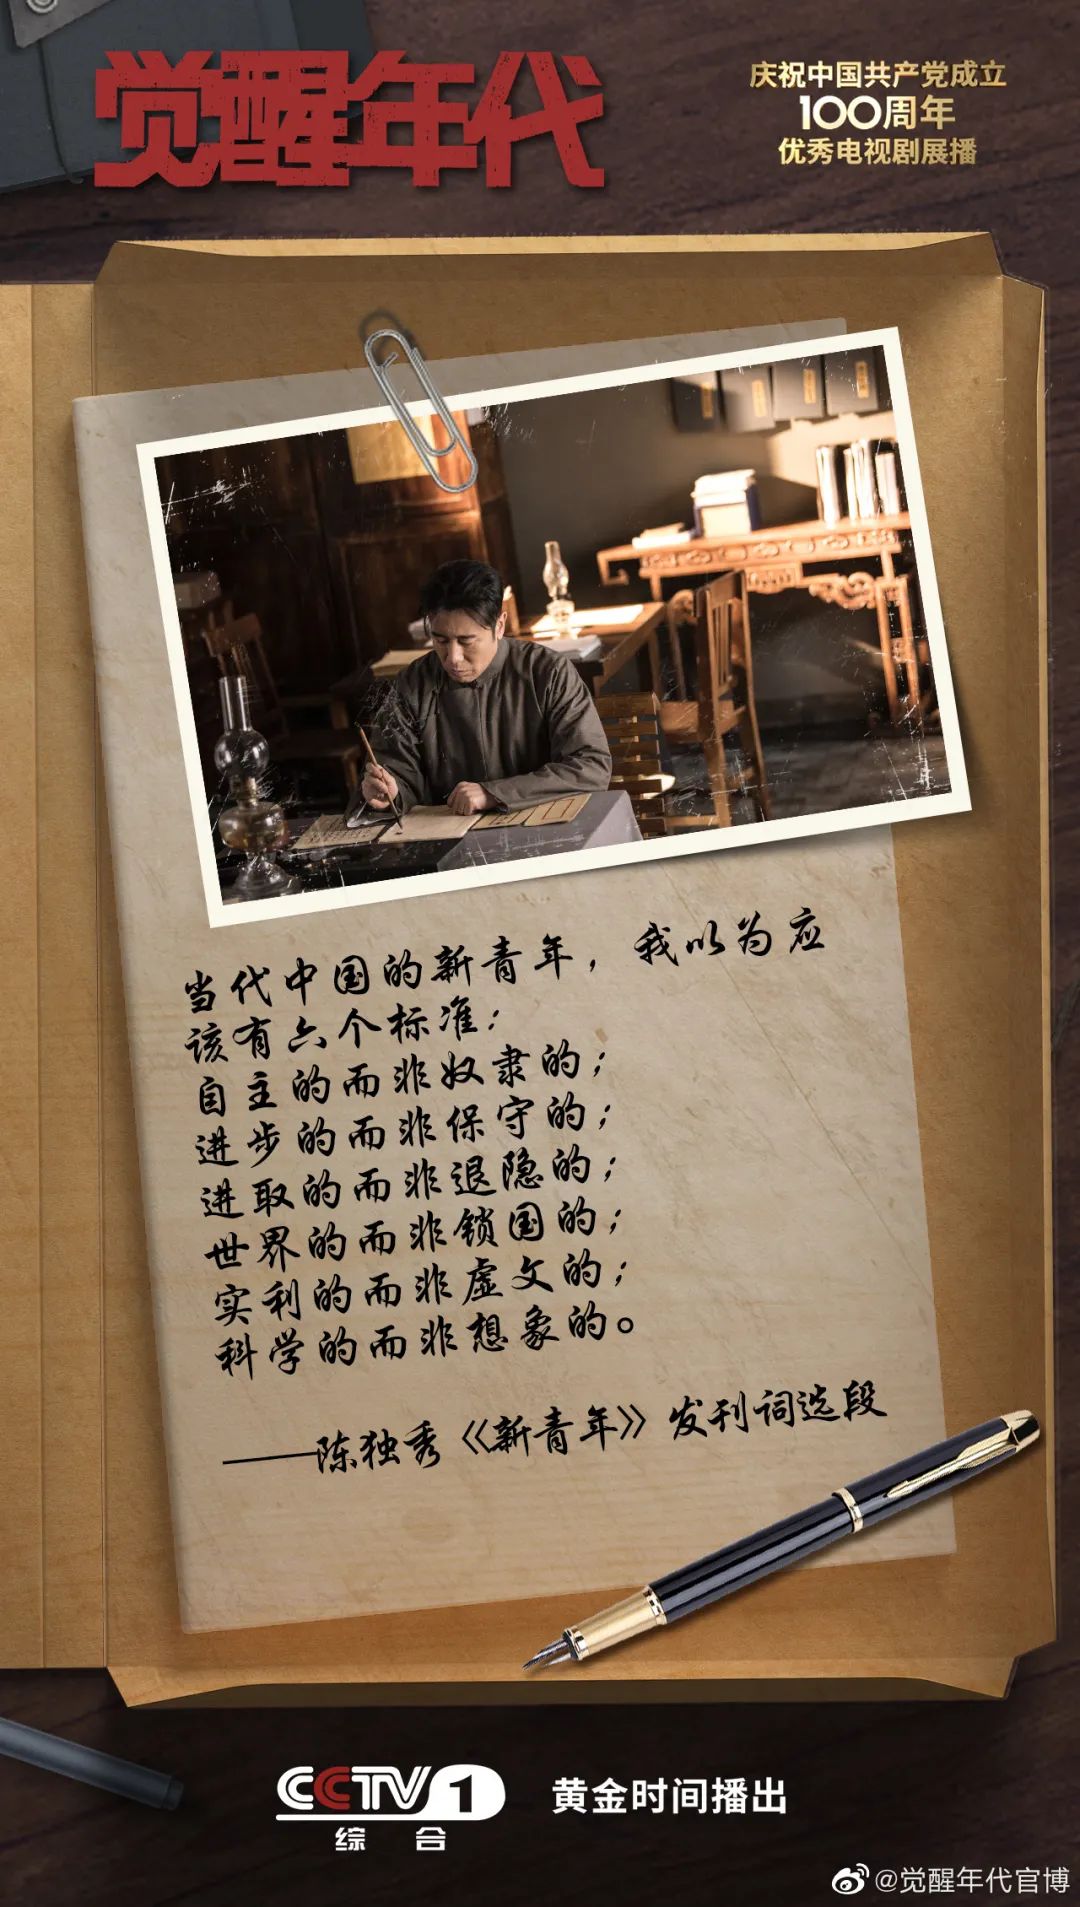 觉醒年代
庆祝中国共产党成立
100周年
优秀电视剧展播
当代中国的新青年，我以为应
该有六个标准：
自主的而非奴隶的；
进步的而非保守的；
进取的而非退隐的；
世界的而非锁国的；
实利的而非虚文的；
科学的而非想象的。
——陈独秀《新青年》发刊词选段
CCTV 1
综合
黄金时间播出
@觉醒年代官博